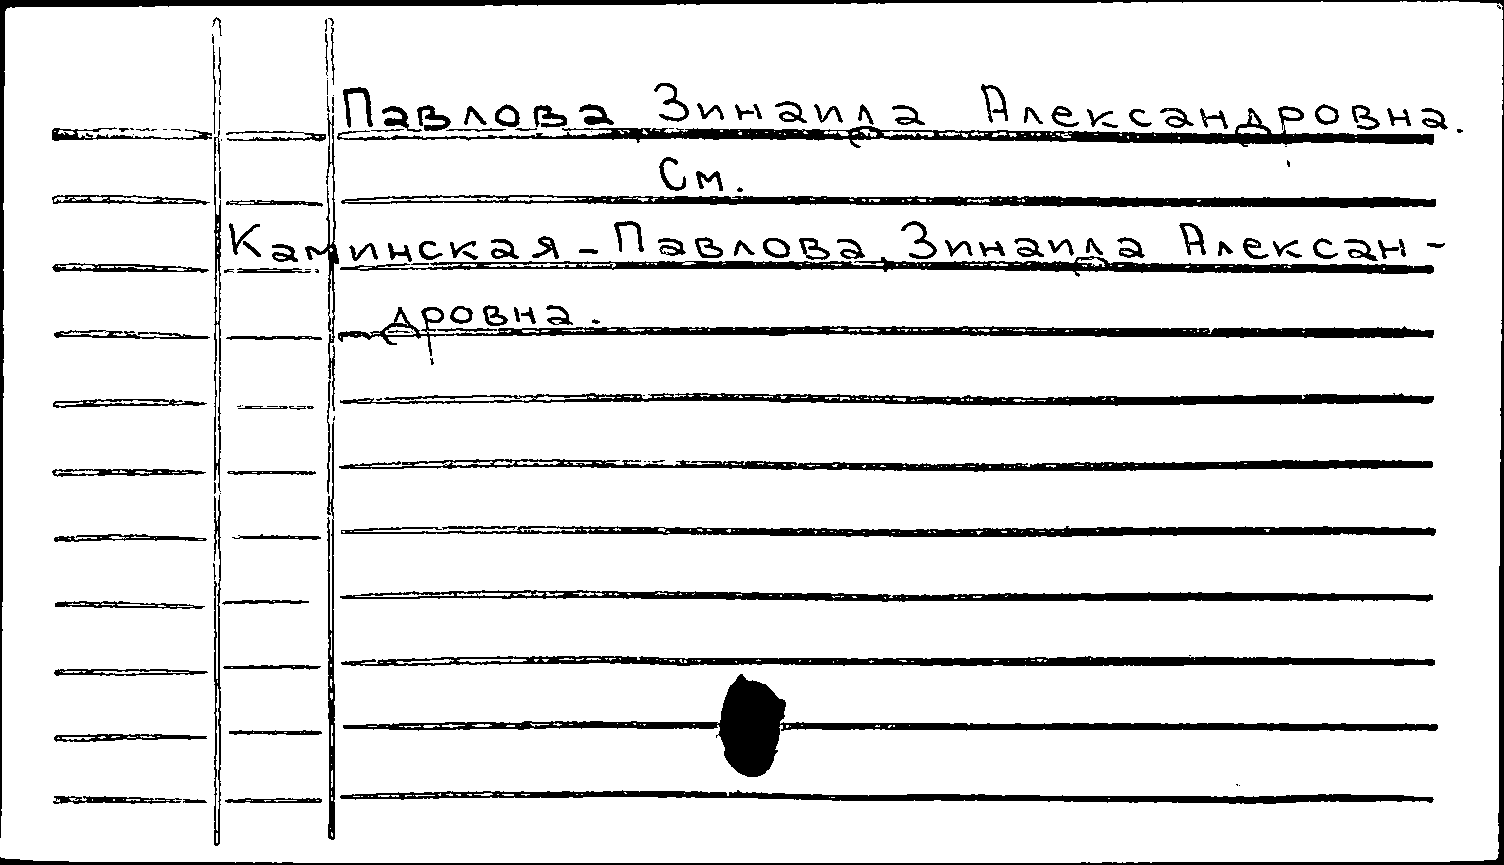 Павлова Зинаида Александровна.
См.
Каминская-Павлова, Зинаида Алексан-
дровна.